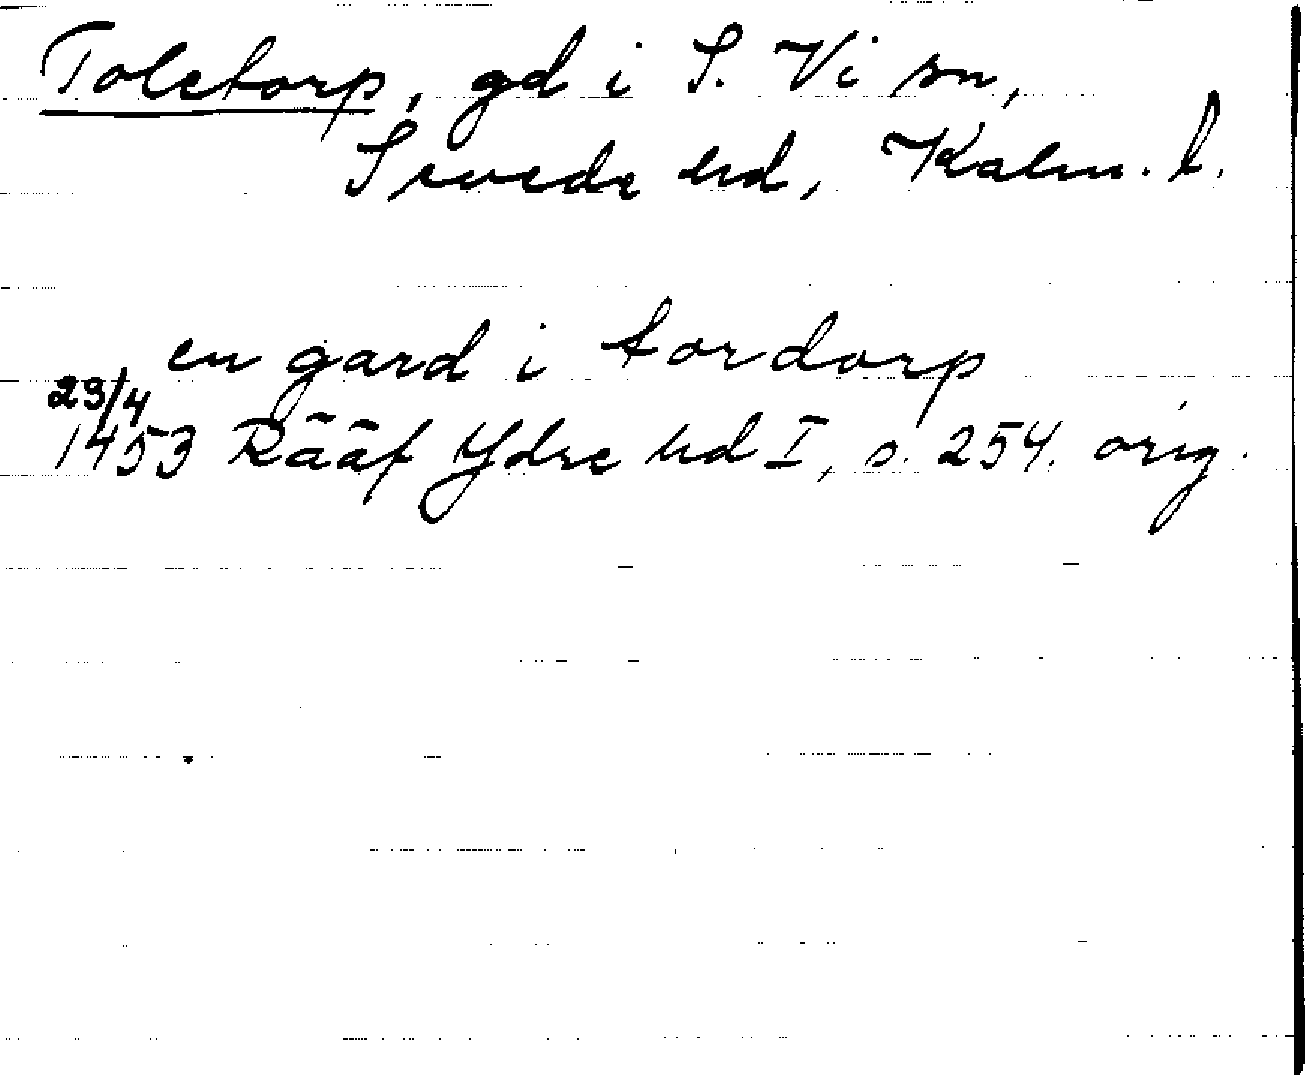 Toletorp, gd i S. Vi sn,
Sevede hd, Kalm. l.
en gard i tordorp
23/4
1453 Rääf Ydre hd I, s. 254. orig.